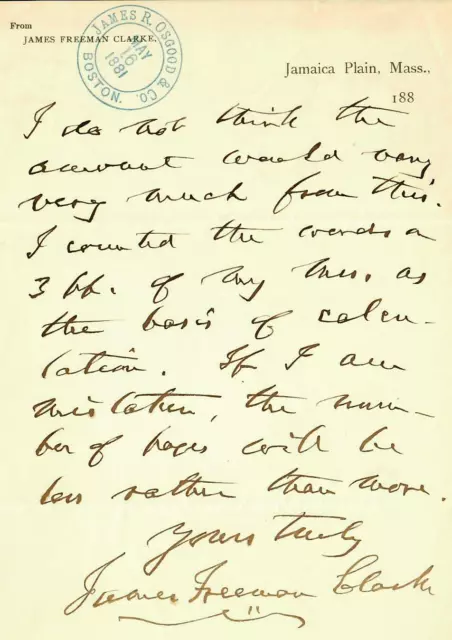 From
JAMES FREEMAN CLARKE.
JAMES R. OSGOOD & CO.
MAY
16
1881
BOSTON.
Jamaica Plain, Mass.,
188
I do not think the
amount would vary
very much from this.
I counted the words on
3 pp. of my mss. as
the basis of calcu-
lation. If I am
mistaken, the num-
ber of pages will be
less rather than more.
Yours truly
James Freeman Clarke